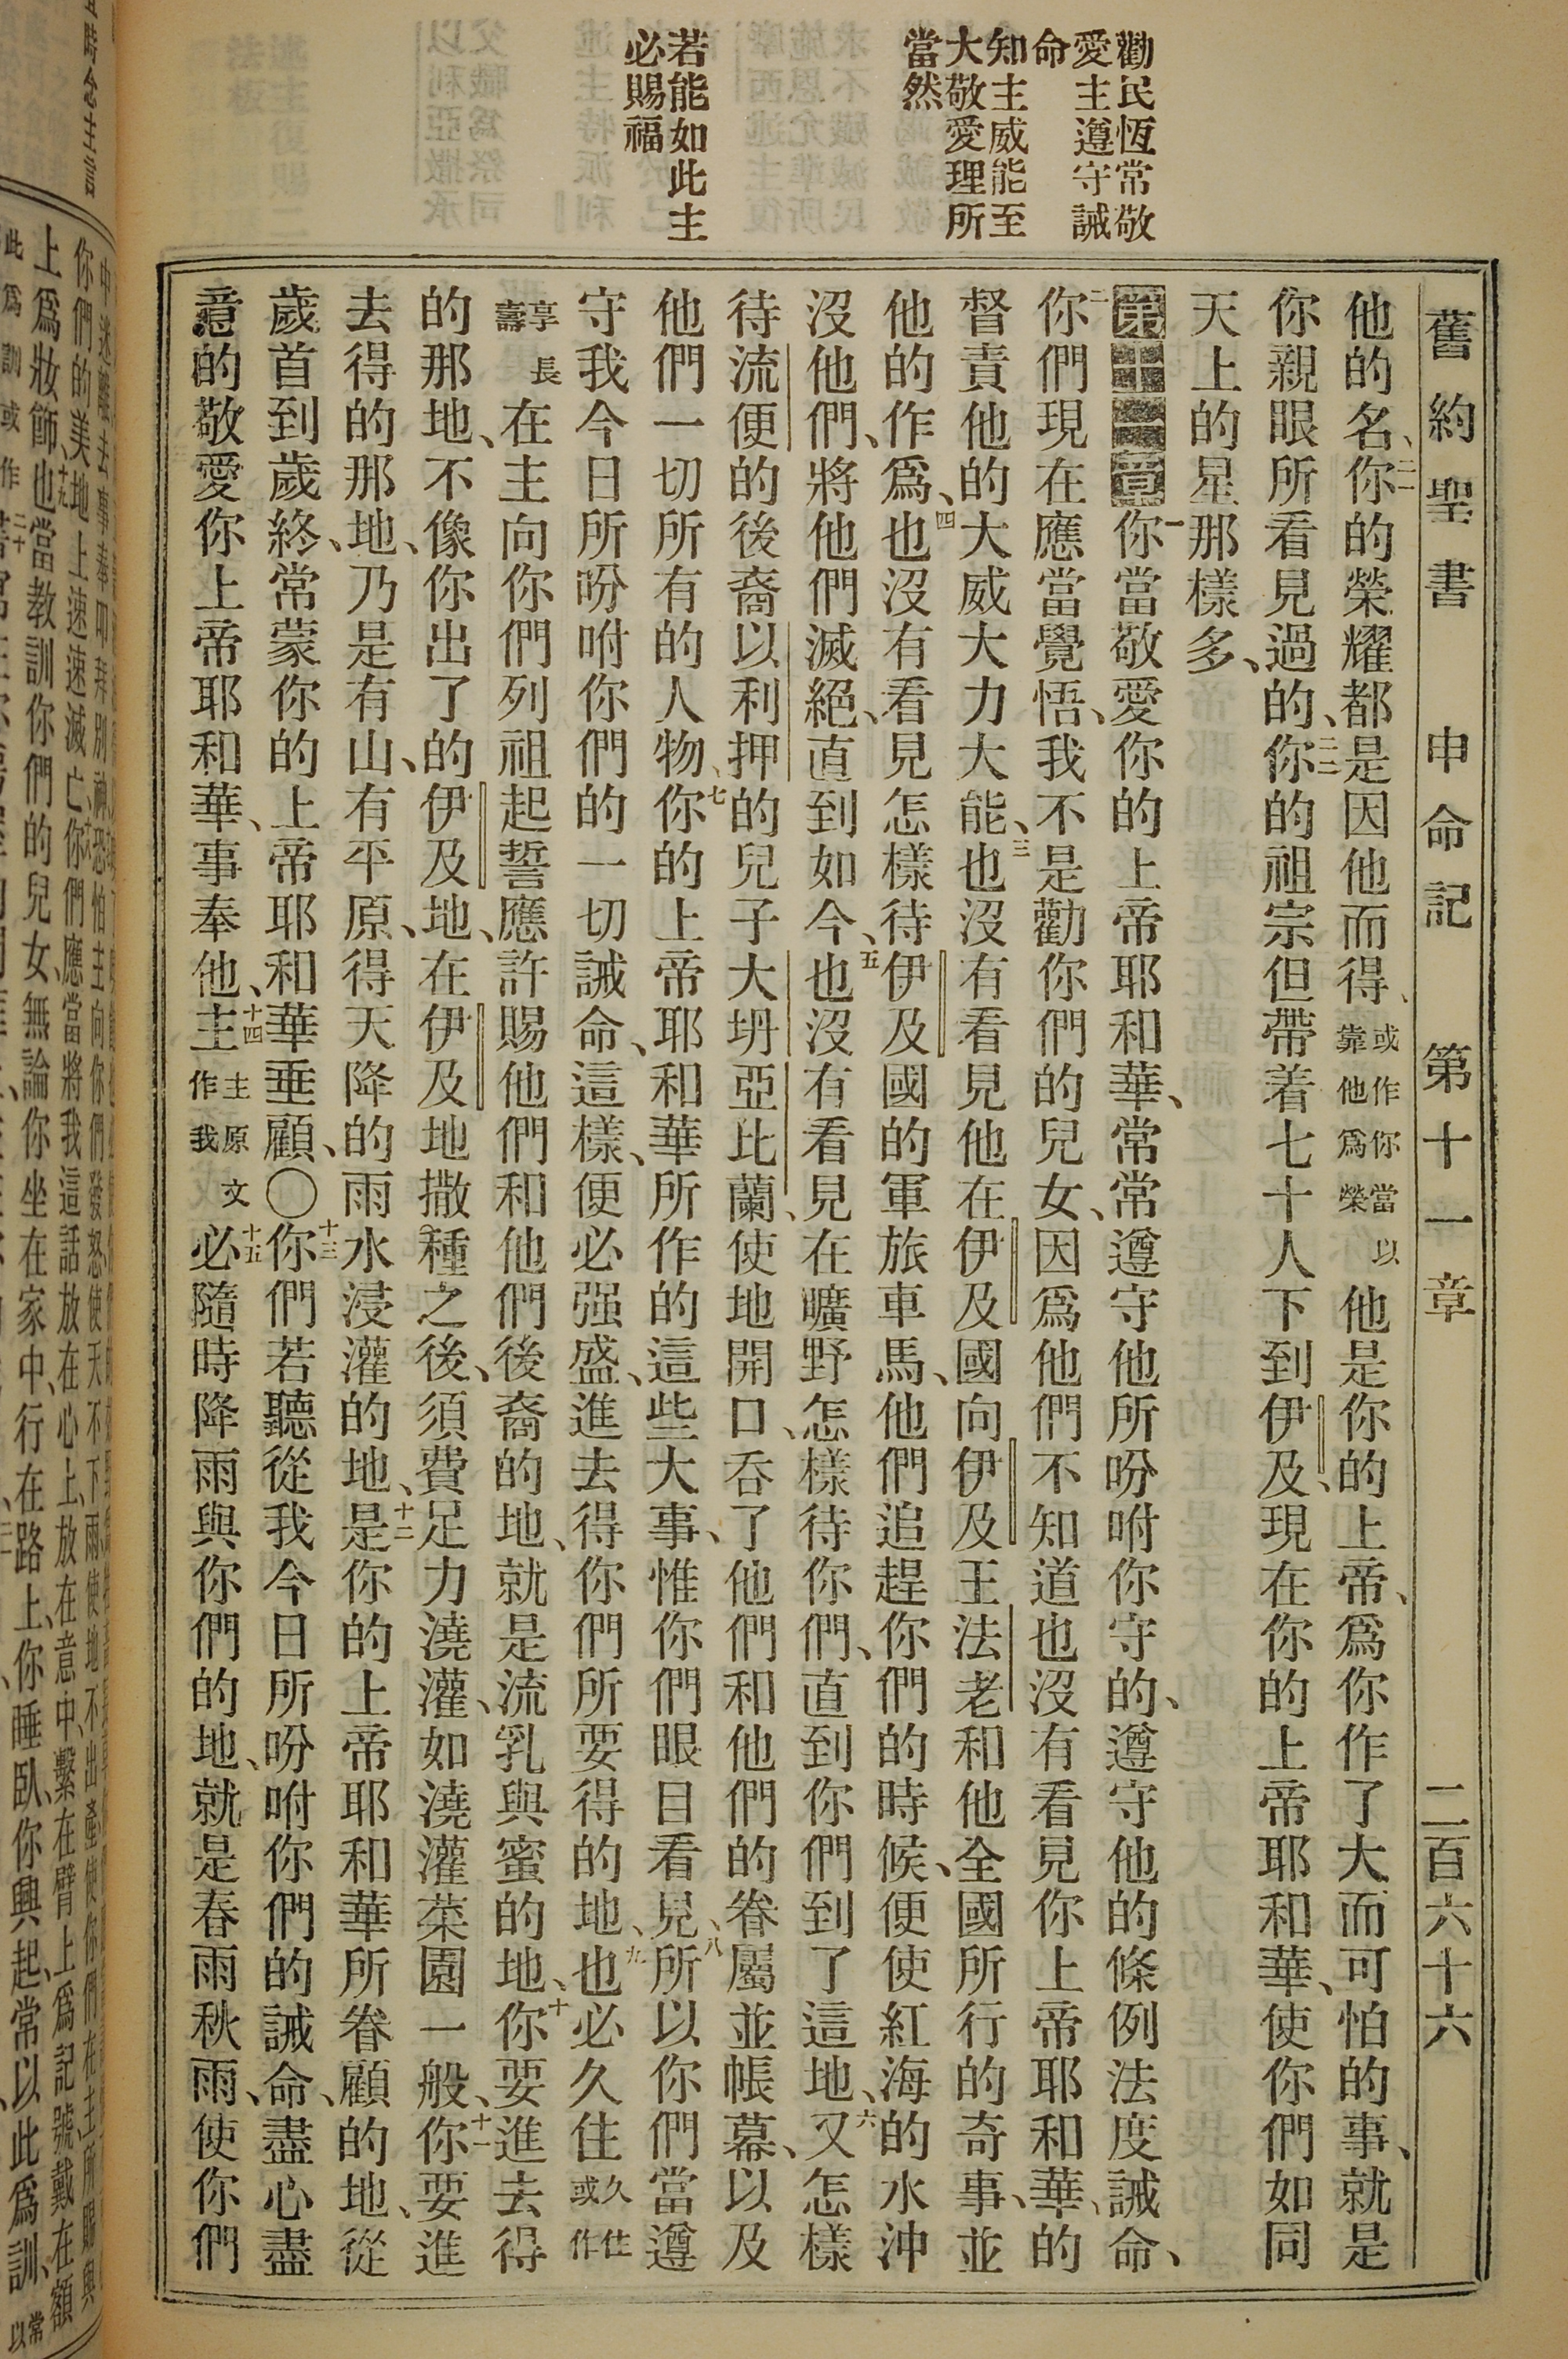 勸民恆常敬
愛主遵守誡
命
知主威能至
大敬愛理所
當然
若能如此主
必賜福
舊約聖書 申命記 第十一章 二百六十六
他的名、二一你的榮耀都是因他而得、或作你當以靠他爲榮他是你的上帝、爲你作了大而可怕的事、就是
你親眼所看見過的、二二你的祖宗但帶着七十人下到伊及、現在你的上帝耶和華、使你們如同
天上的星那樣多、
第十一章一你當敬愛你的上帝耶和華、常常遵守他所吩咐你守的、遵守他的條例法度誡命、
二你們現在應當覺悟、我不是勸你們的兒女、因爲他們不知道也沒有看見你上帝耶和華、的
督責他的大威大力大能、三也沒有看見他在伊及國向伊及王法老和他全國所行的奇事、並
他的作爲、四也沒有看見怎樣待伊及國的軍旅車馬、他們追趕你們的時候、便使紅海的水沖
沒他們、將他們滅絕、直到如今、五也沒有看見在曠野怎樣待你們、直到你們到了這地、六又怎樣
待流便的後裔以利押的兒子大坍亞比蘭、使地開口、吞了他們和他們的眷屬並帳幕、以及
他們一切所有的人物、七你的上帝耶和華所作的這些大事、惟你們眼目看見、八所以你們當遵
守我今日所吩咐你們的一切誡命、這樣、便必强盛、進去得你們所要得的地、九也必久住久住或作
享長壽在主向你們列祖起誓應許賜他們和他們後裔的地、就是流乳與蜜的地、十你要進去得
的那地、不像你出了的伊及地、在伊及地撒種之後、須費足力澆灌、如澆灌菜園一般、十一你要進
去得的那地、乃是有山、有平原、得天降的雨水浸灌的地、十二是你的上帝耶和華所眷顧的地、從
歲首到歲終、常蒙你的上帝耶和華垂顧、〇十三你們若聽從我今日所吩咐你們的誡命、盡心盡
意的敬愛你上帝耶和華、事奉他、十四主主原文作我十五必隨時降雨與你們的地、就是春雨秋雨、使你們